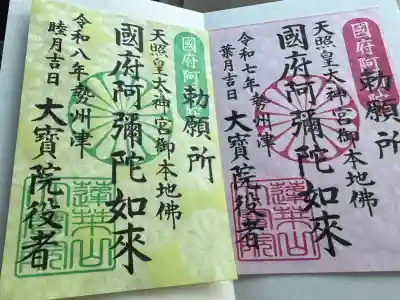 國府阿
勅願所
天照皇太神宮御本地佛
國府阿彌陀如來
令和八年勢州津
大寶院役者
睦月吉日
蓮華山
國府阿彌陀
勅願所
天照皇太神宮御本地佛
國府阿彌陀如來
令和七年勢州津
大寶院役者
葉月吉日
蓮華山